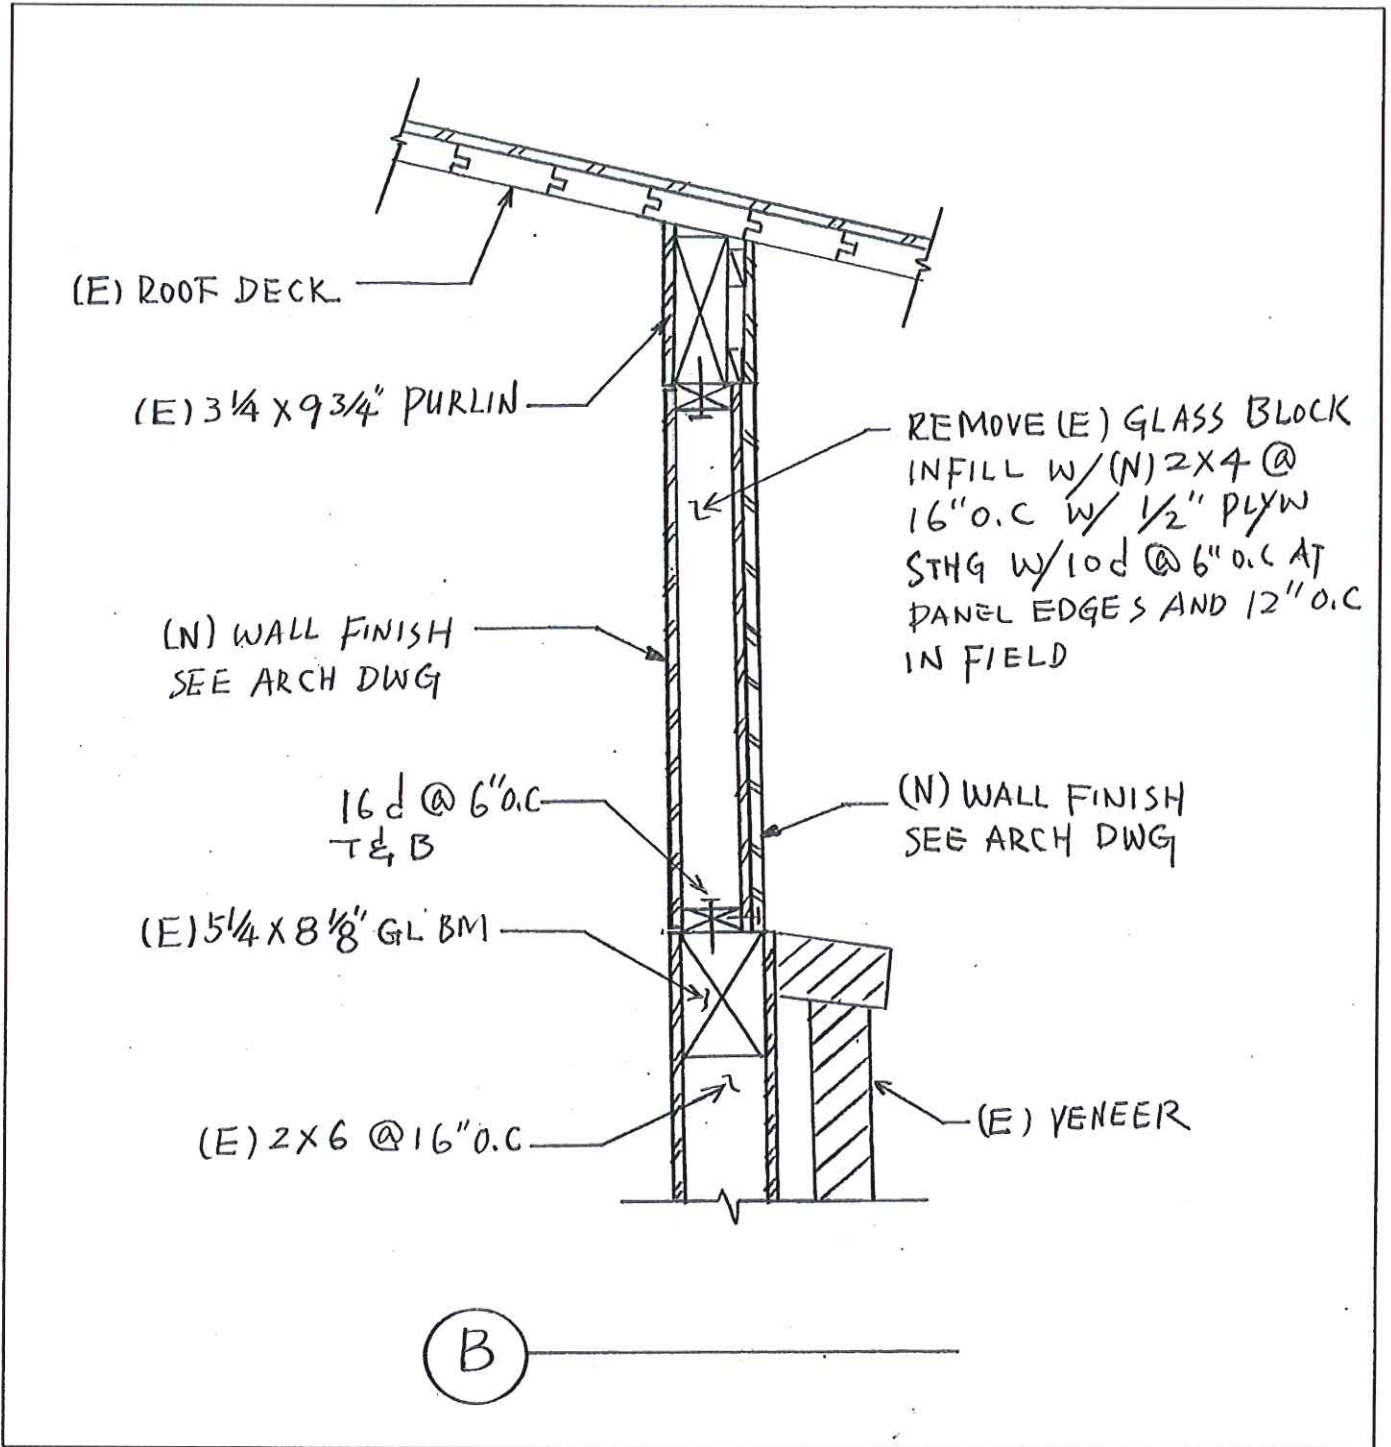 (E) ROOF DECK.
(E) 3 1/4 X 9 3/4" PURLIN
REMOVE (E) GLASS BLOCK
INFILL W/ (N) 2X4 @
16" O.C W/ 1/2" PLYW
STHG W/ 10d @ 6" O.C AT
PANEL EDGES AND 12" O.C
IN FIELD
(N) WALL FINISH
SEE ARCH DWG
16d @ 6" O.C
T & B
(N) WALL FINISH
SEE ARCH DWG
(E) 5 1/4 X 8 1/8" GL BM
(E) 2X6 @ 16" O.C
(E) VENEER
B